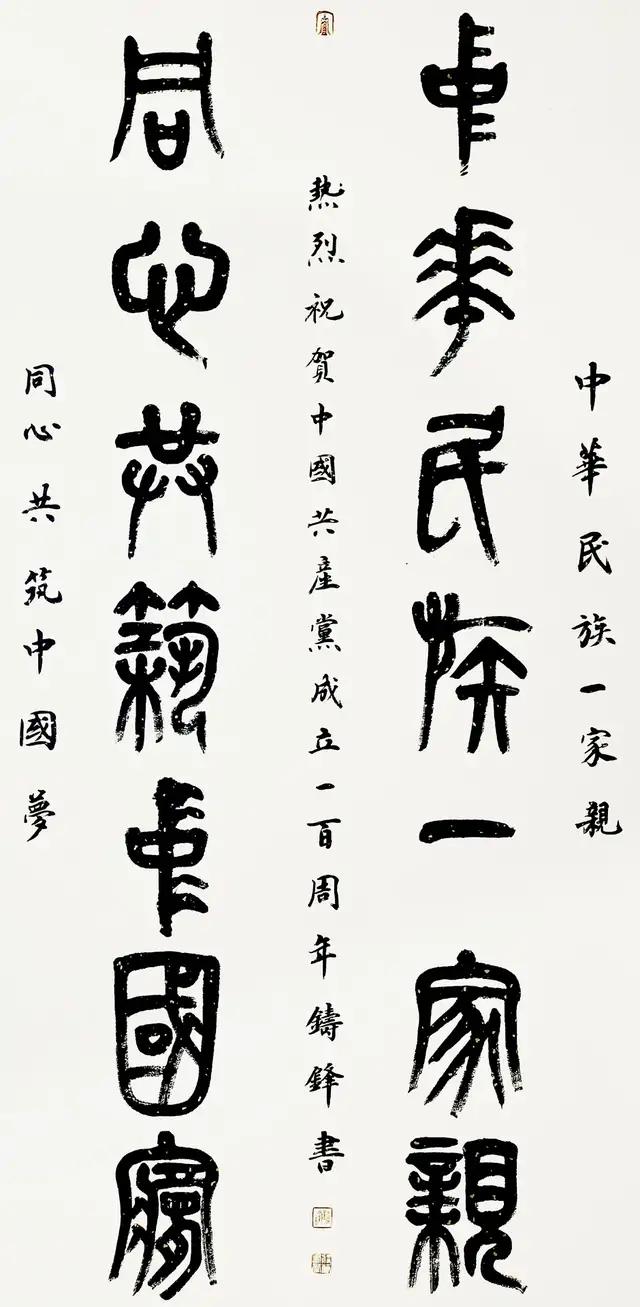 中華民族一家親
中華民族一家親
熱烈祝賀中國共産黨成立一百周年鑄鋒書
同心共筑中國夢
同心共筑中國夢